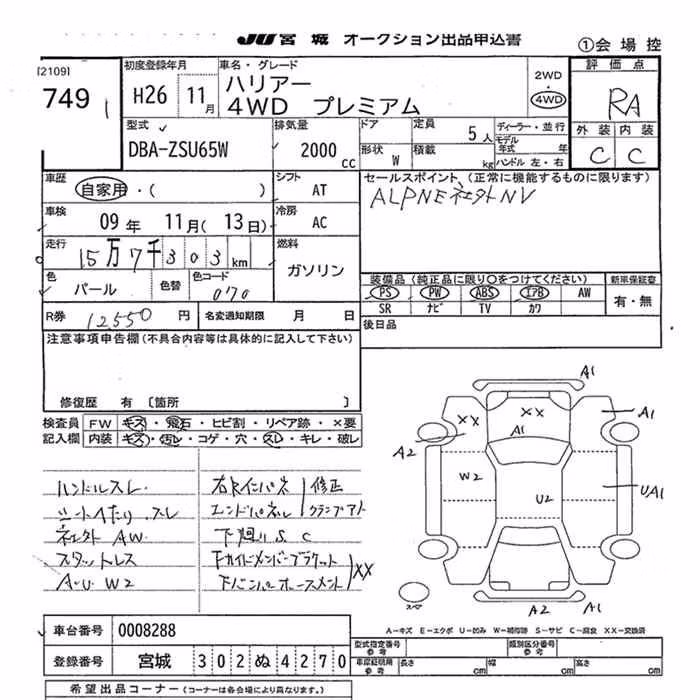 JU 宮 城 オークション出品申込書
①会 場 控
[2109]
749 1
初度登録年月
H26 11月
車名・グレード
ハリアー
4WD プレミアム
2WD
・
4WD
評 価 点
RA
外 装 内 装
C C
型式
DBA-ZSU65W
排気量
2000 cc
ドア
定員
5人
形状 W
積載
kg
ディーラー・並行
モデル年式 年
ハンドル 左・右
車歴
自家用・( )
シフト
AT
車検
09年 11月( 13日)
冷房
AC
走行
15万7千303km
燃料
ガソリン
色
パール
色替
色コード
070
R券 12550 円
名変通知期限 月 日
セールスポイント、(正常に機能するものに限ります)
ALPNE社外NV
装備品(純正品に限り○をつけてください)
新車保証書
PS PW ABS エアB AW
有・無
SR ナビ TV カワ
後日品
注意事項申告欄(不具合内容等は具体的に記入して下さい)
修復歴 有 〔箇所 〕
検査員
記入欄
FW キズ・飛石・ヒビ割・リペア跡・×要
内装 キズ・汚レ・コゲ・穴・スレ・キレ・破レ
ハンドルスレ
シートヘたり.スレ
社外AW
スタットレス
A-U W2
右Rインパネ
エンドパネル
修正
クランプアト
下廻り S C
Fサイドメンバーブラケット
下バンパホースメント
XX
A1
XX
XX
A1
A1
A2
W2
U2
UA1
スペア
A2
A1
A-キズ E-エクボ U-凹み W-補修跡 S-サビ C-腐食 XX-交換済
車台番号 0008288
登録番号 宮城 302ぬ4270
型式指定番号
参考
類別区分番号
参考
車庫証明用
参考
長さ cm
幅 cm
高さ cm
希望出品コーナー(コーナーは各会場により異なります。)